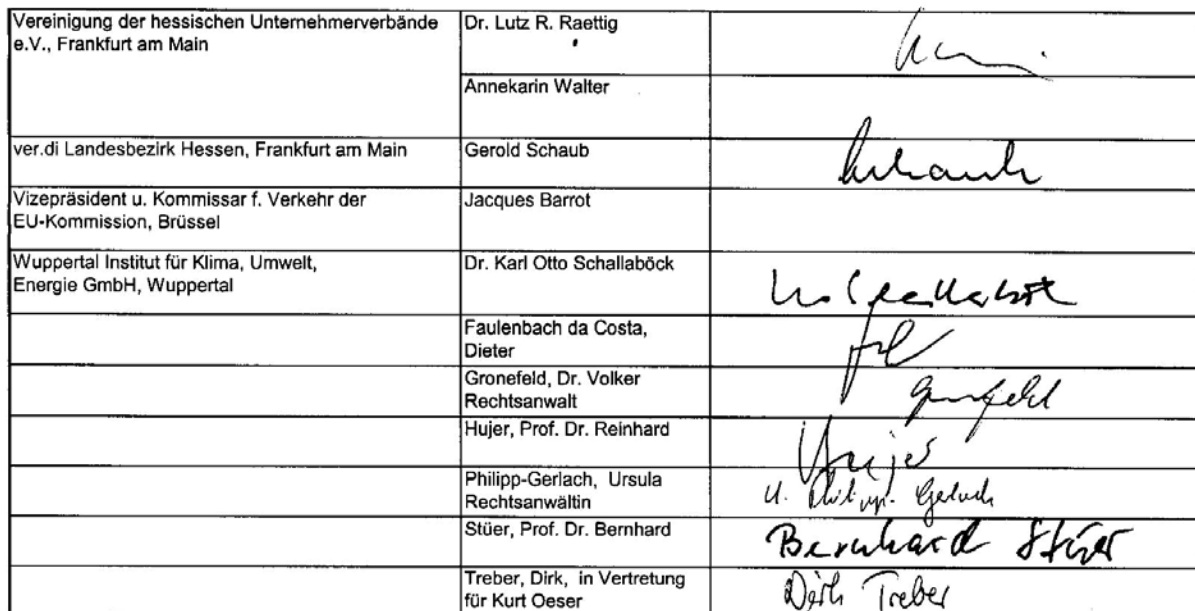 Vereinigung der hessischen Unternehmerverbände
e.V., Frankfurt am Main
Dr. Lutz R. Raettig
Annekarin Walter
ver.di Landesbezirk Hessen, Frankfurt am Main
Gerold Schaub
Vizepräsident u. Kommissar f. Verkehr der
EU-Kommission, Brüssel
Jacques Barrot
Wuppertal Institut für Klima, Umwelt,
Energie GmbH, Wuppertal
Dr. Karl Otto Schallaböck
Faulenbach da Costa,
Dieter
Gronefeld, Dr. Volker
Rechtsanwalt
Hujer, Prof. Dr. Reinhard
Hujer
Philipp-Gerlach, Ursula
Rechtsanwältin
U. Philipp-Gerlach
Stüer, Prof. Dr. Bernhard
Bernhard Stüer
Treber, Dirk, in Vertretung
für Kurt Oeser
Dirk Treber